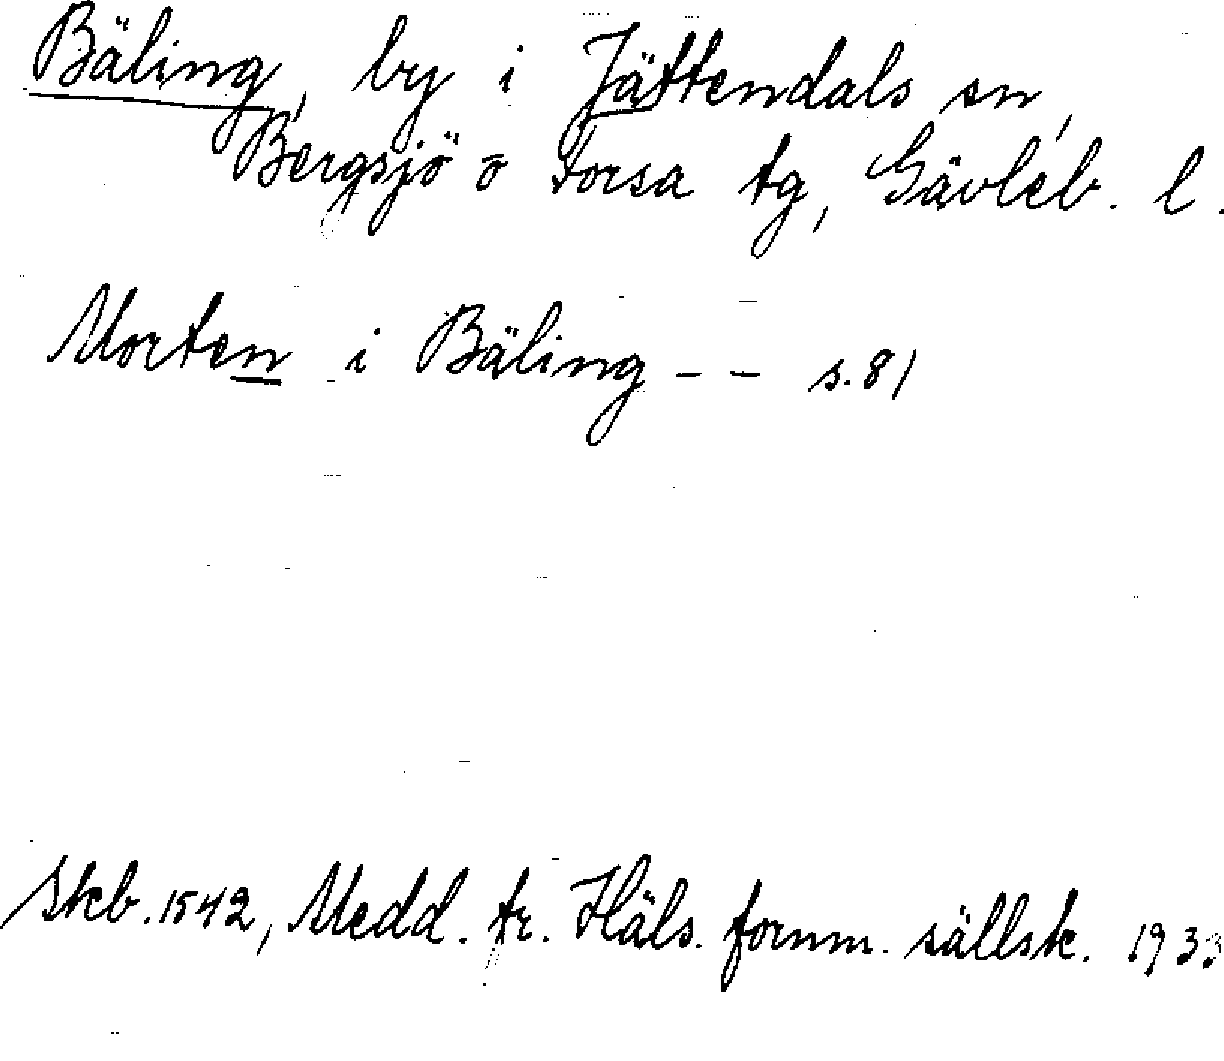 Bäling, by i Jättendals sn,
Bergsjö o Forsa tg, Gävleb. l.
Morten i Bäling - - s. 81
Skb. 1542, Medd. fr. Häls. fornm. sällsk. 1933